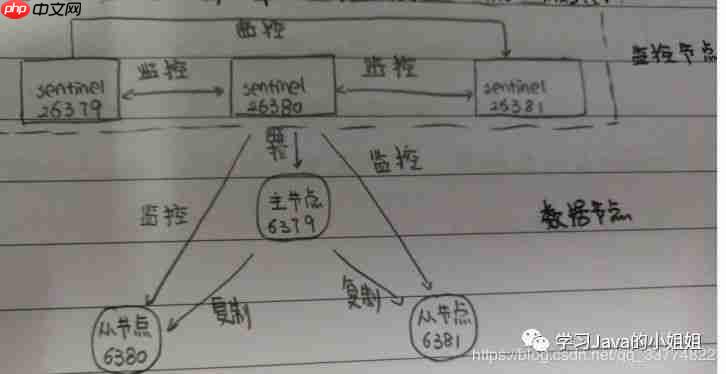 php 中文网
监控
监控节点
监控
监控
sentinel
26379
sentinel
26380
sentinel
26381
监控
监控
监控
主节点
6379
数据节点
复制
复制
从节点
6380
从节点
6381
学习Java的小姐姐
https://blog.csdn.net/qq_33774822